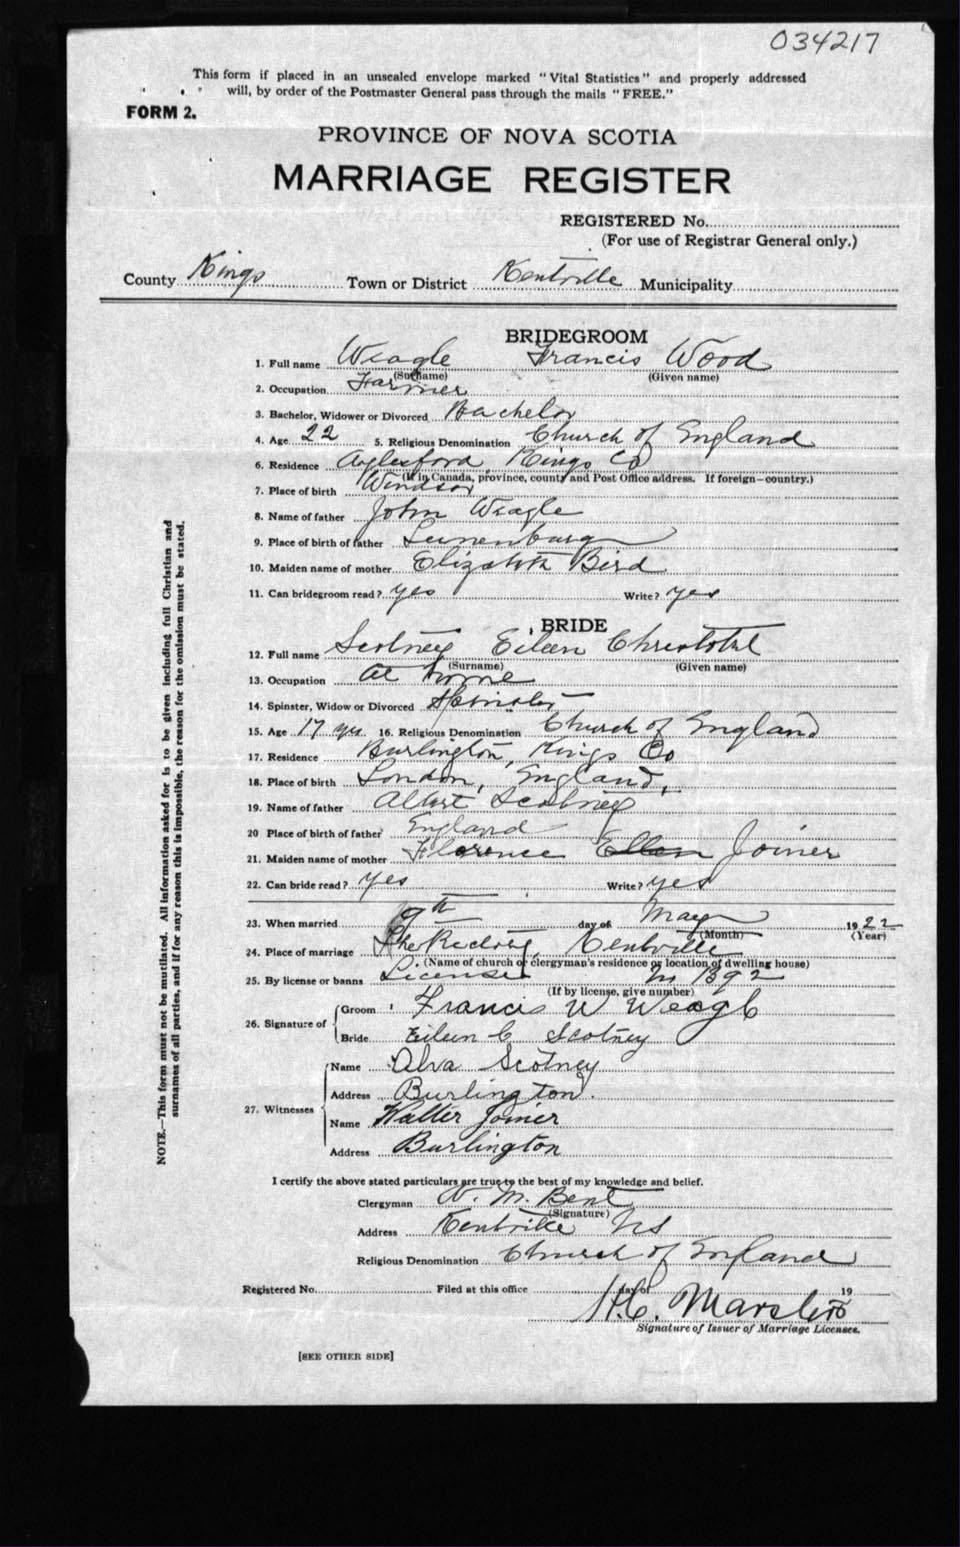 034217
This form if placed in an unsealed envelope marked "Vital Statistics" and properly addressed
will, by order of the Postmaster General pass through the mails "FREE."
FORM 2.
PROVINCE OF NOVA SCOTIA
MARRIAGE REGISTER
REGISTERED No.
(For use of Registrar General only.)
County Kings Town or District Kentville Municipality
BRIDEGROOM
1. Full name Weagle Francis Wood
(Surname) (Given name)
2. Occupation Farmer
3. Bachelor, Widower or Divorced Bachelor
4. Age 22 5. Religious Denomination Church of England
6. Residence Aylesford Kings Co
(If in Canada, province, county and Post Office address. If foreign—country.)
7. Place of birth Windsor
8. Name of father John Weagle
9. Place of birth of father Lunenburg
10. Maiden name of mother Elizabeth Bird
11. Can bridegroom read? yes Write? yes
BRIDE
12. Full name Scotney Eileen
(Surname) (Given name)
13. Occupation at home
14. Spinster, Widow or Divorced Spinster
15. Age 17 yrs 16. Religious Denomination Church of England
17. Residence Burlington, Kings Co
18. Place of birth London, England,
19. Name of father Albert Scotney
20 Place of birth of father England
21. Maiden name of mother Florence Ellen Joiner
22. Can bride read? yes Write? yes
23. When married 9th day of May 1922
(Month) (Year)
24. Place of marriage The Rectory, Kentville
(Name of church or clergyman's residence or location of dwelling house)
25. By license or banns License No 1392
(If by license, give number)
26. Signature of Groom Francis W Weagle
Bride Eileen C Scotney
27. Witnesses Name Alva Scotney
Address Burlington.
Name Walter Joiner
Address Burlington
I certify the above stated particulars are true to the best of my knowledge and belief.
Clergyman W. M. Bent
(Signature)
Address Kentville NS
Religious Denomination Church of England
Registered No. Filed at this office day of 19
H.C. Marsters
Signature of Issuer of Marriage Licenses.
[SEE OTHER SIDE]
NOTE.—This form must not be mutilated. All information asked for is to be given including full Christian and
surnames of all parties, and if for any reason this is impossible, the reason for the omission must be stated.